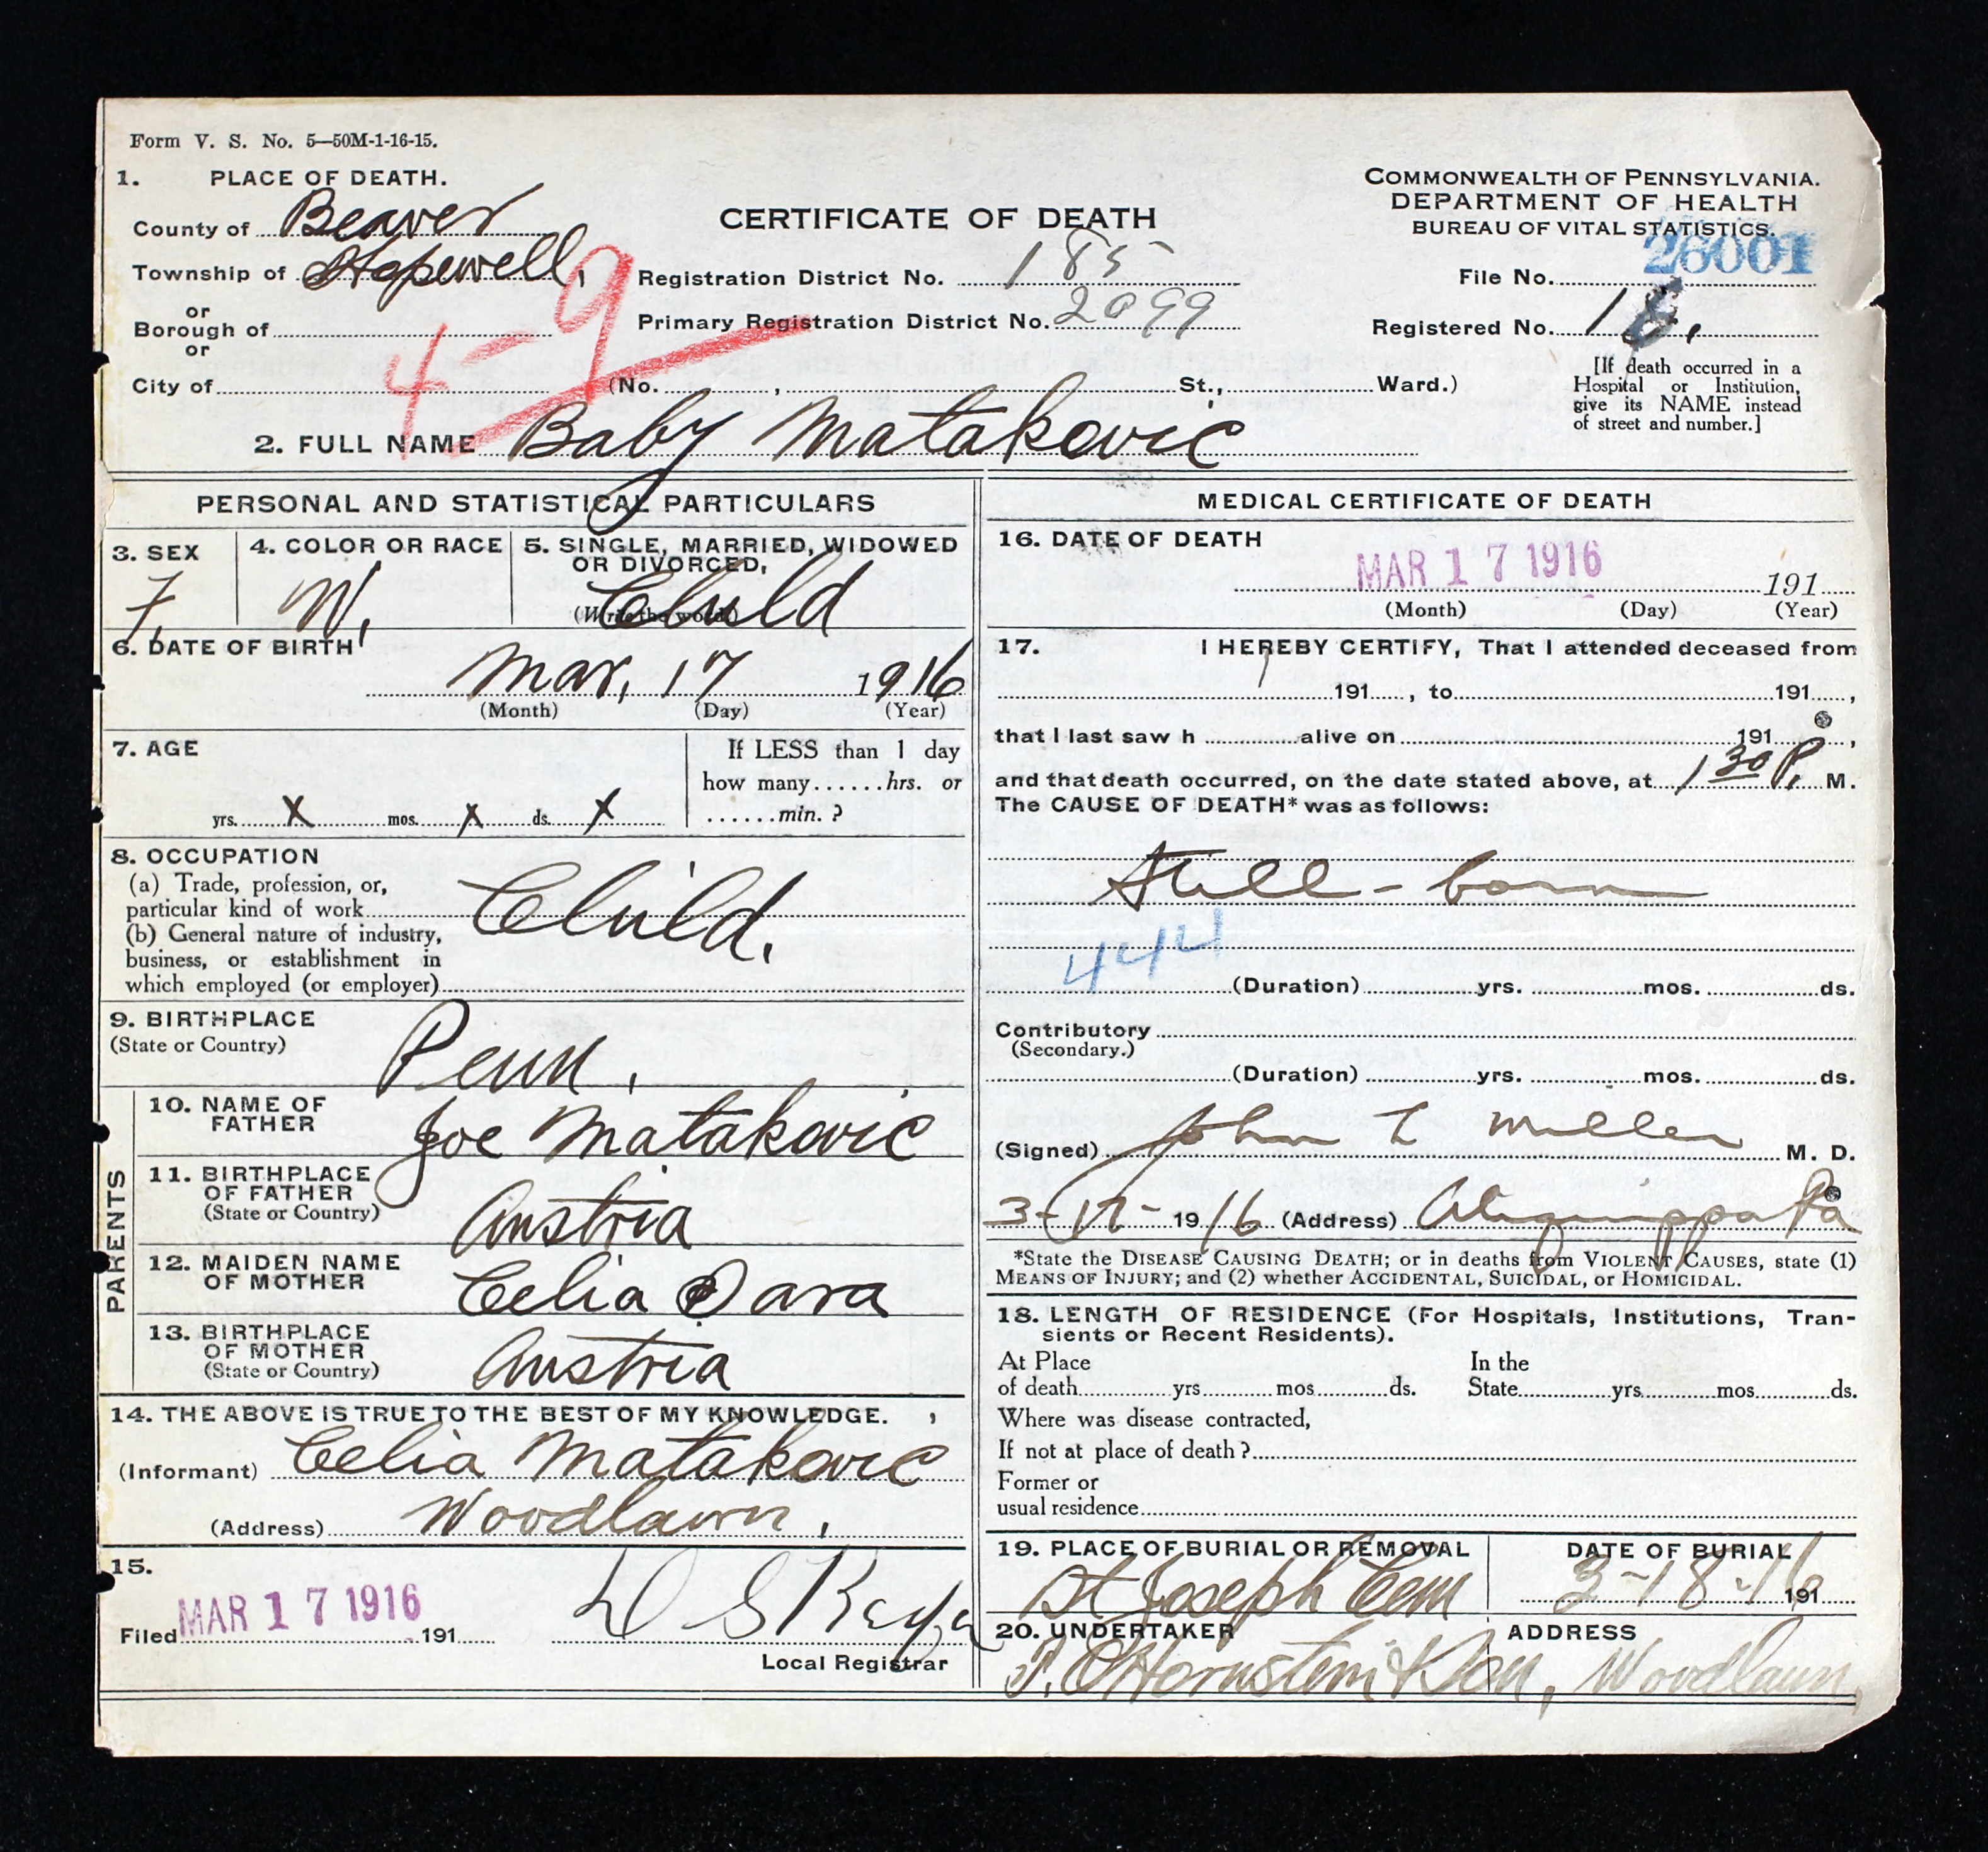 Form V. S. No. 5—50M-1-16-15.
1. PLACE OF DEATH.
County of Beaver
Township of Hopewell,
or
Borough of
or
City of
CERTIFICATE OF DEATH
Registration District No. 185
Primary Registration District No. 2099
(No. , St., Ward.)
COMMONWEALTH OF PENNSYLVANIA.
DEPARTMENT OF HEALTH
BUREAU OF VITAL STATISTICS.
File No. 26001
Registered No. 18.
[If death occurred in a
Hospital or Institution,
give its NAME instead
of street and number.]
4-9
2. FULL NAME Baby Matakovic
PERSONAL AND STATISTICAL PARTICULARS
3. SEX
F.
4. COLOR OR RACE
W.
5. SINGLE, MARRIED, WIDOWED
OR DIVORCED,
(Write the word)
Child
6. DATE OF BIRTH
Mar, 17 1916
(Month) (Day) (Year)
7. AGE
yrs. X mos. X ds. X
If LESS than 1 day
how many......hrs. or
......min. ?
8. OCCUPATION
(a) Trade, profession, or,
particular kind of work
(b) General nature of industry,
business, or establishment in
which employed (or employer)
Child.
9. BIRTHPLACE
(State or Country)
Penn,
PARENTS
10. NAME OF
FATHER
Joe Matakovic
11. BIRTHPLACE
OF FATHER
(State or Country)
Austria
12. MAIDEN NAME
OF MOTHER
Celia Dara
13. BIRTHPLACE
OF MOTHER
(State or Country)
Austria
14. THE ABOVE IS TRUE TO THE BEST OF MY KNOWLEDGE.
(Informant) Celia Matakovic
(Address) Woodlawn,
15.
Filed MAR 17 1916 191
D S
Local Registrar
MEDICAL CERTIFICATE OF DEATH
16. DATE OF DEATH
MAR 17 1916 191
(Month) (Day) (Year)
17. I HEREBY CERTIFY, That I attended deceased from
191...., to 191....,
that I last saw h alive on 191....,
and that death occurred, on the date stated above, at 1 30 P. M.
The CAUSE OF DEATH* was as follows:
Still-born
444
(Duration) yrs. mos. ds.
Contributory
(Secondary.)
(Duration) yrs. mos. ds.
(Signed) John L Miller M. D.
3-17-1916 (Address) Aliquippa Pa
*State the DISEASE CAUSING DEATH; or in deaths from VIOLENT CAUSES, state (1)
MEANS OF INJURY; and (2) whether ACCIDENTAL, SUICIDAL, or HOMICIDAL.
18. LENGTH OF RESIDENCE (For Hospitals, Institutions, Tran-
sients or Recent Residents).
At Place
of death yrs mos ds.
In the
State yrs mos ds.
Where was disease contracted,
If not at place of death?
Former or
usual residence
19. PLACE OF BURIAL OR REMOVAL
St Joseph Cem
DATE OF BURIAL
3-18-16 191
20. UNDERTAKER
ADDRESS
& Son, Woodlawn,